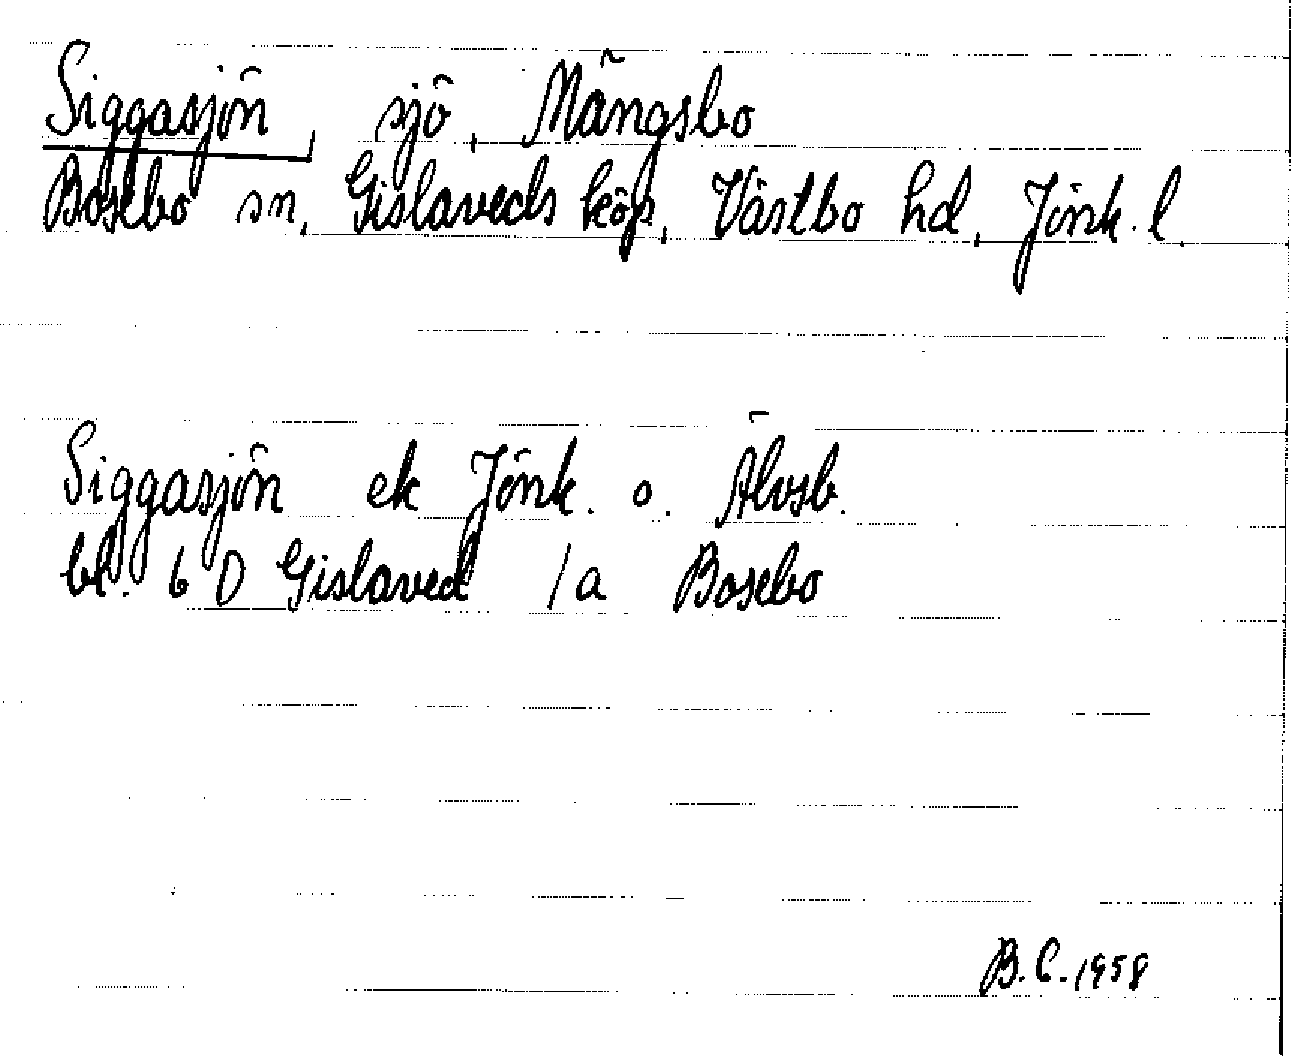 Siggasjön, sjö, Mängsbo
Bosebo sn, Gislaveds köp, Västbo hd, Jönk. l.
Siggasjön ek Jönk. o. Älvsb.
bl. 6 D Gislaved 1a Bosebo
B.C. 1958